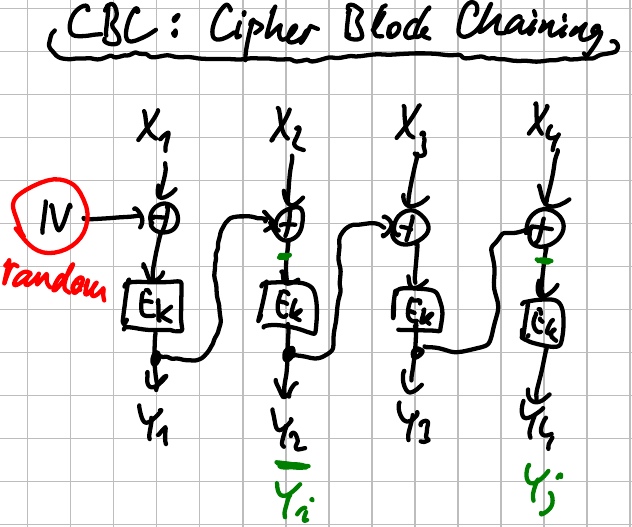 CBC: Cipher Block Chaining
X₁ X₂ X₃ X₄
IV
random
E_K E_K E_K E_K
Y₁ Y₂ Y₃ Y₄
Y_i Y_j